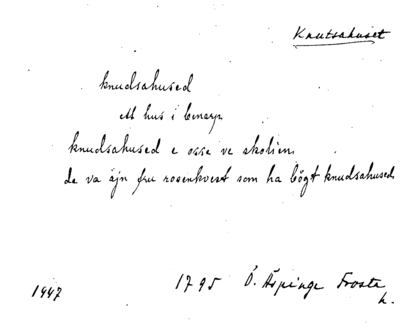 Knutsahuset
knudsahused
ett hus i benarp
knudsahused e osse ve skolien
de va äjn fru rosenkvest som ha bögt knudsahused
1947 1795 Ö. Äspinge Frosta
h.